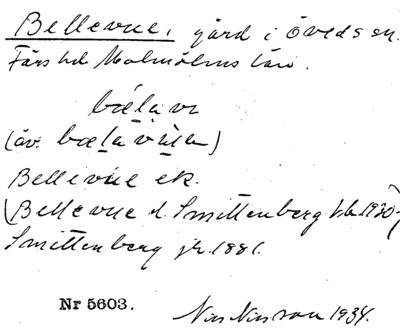 Bellevue, gård i Öveds sn.
Färs hd Malmöhus län.
bælavi
(äv. bælavian)
Bellevue ek.
(Bellevue el. Smittenberg hbr 1930)
Smittenberg jr. 1881.
Nr 5603. Nils Nilsson 1934.